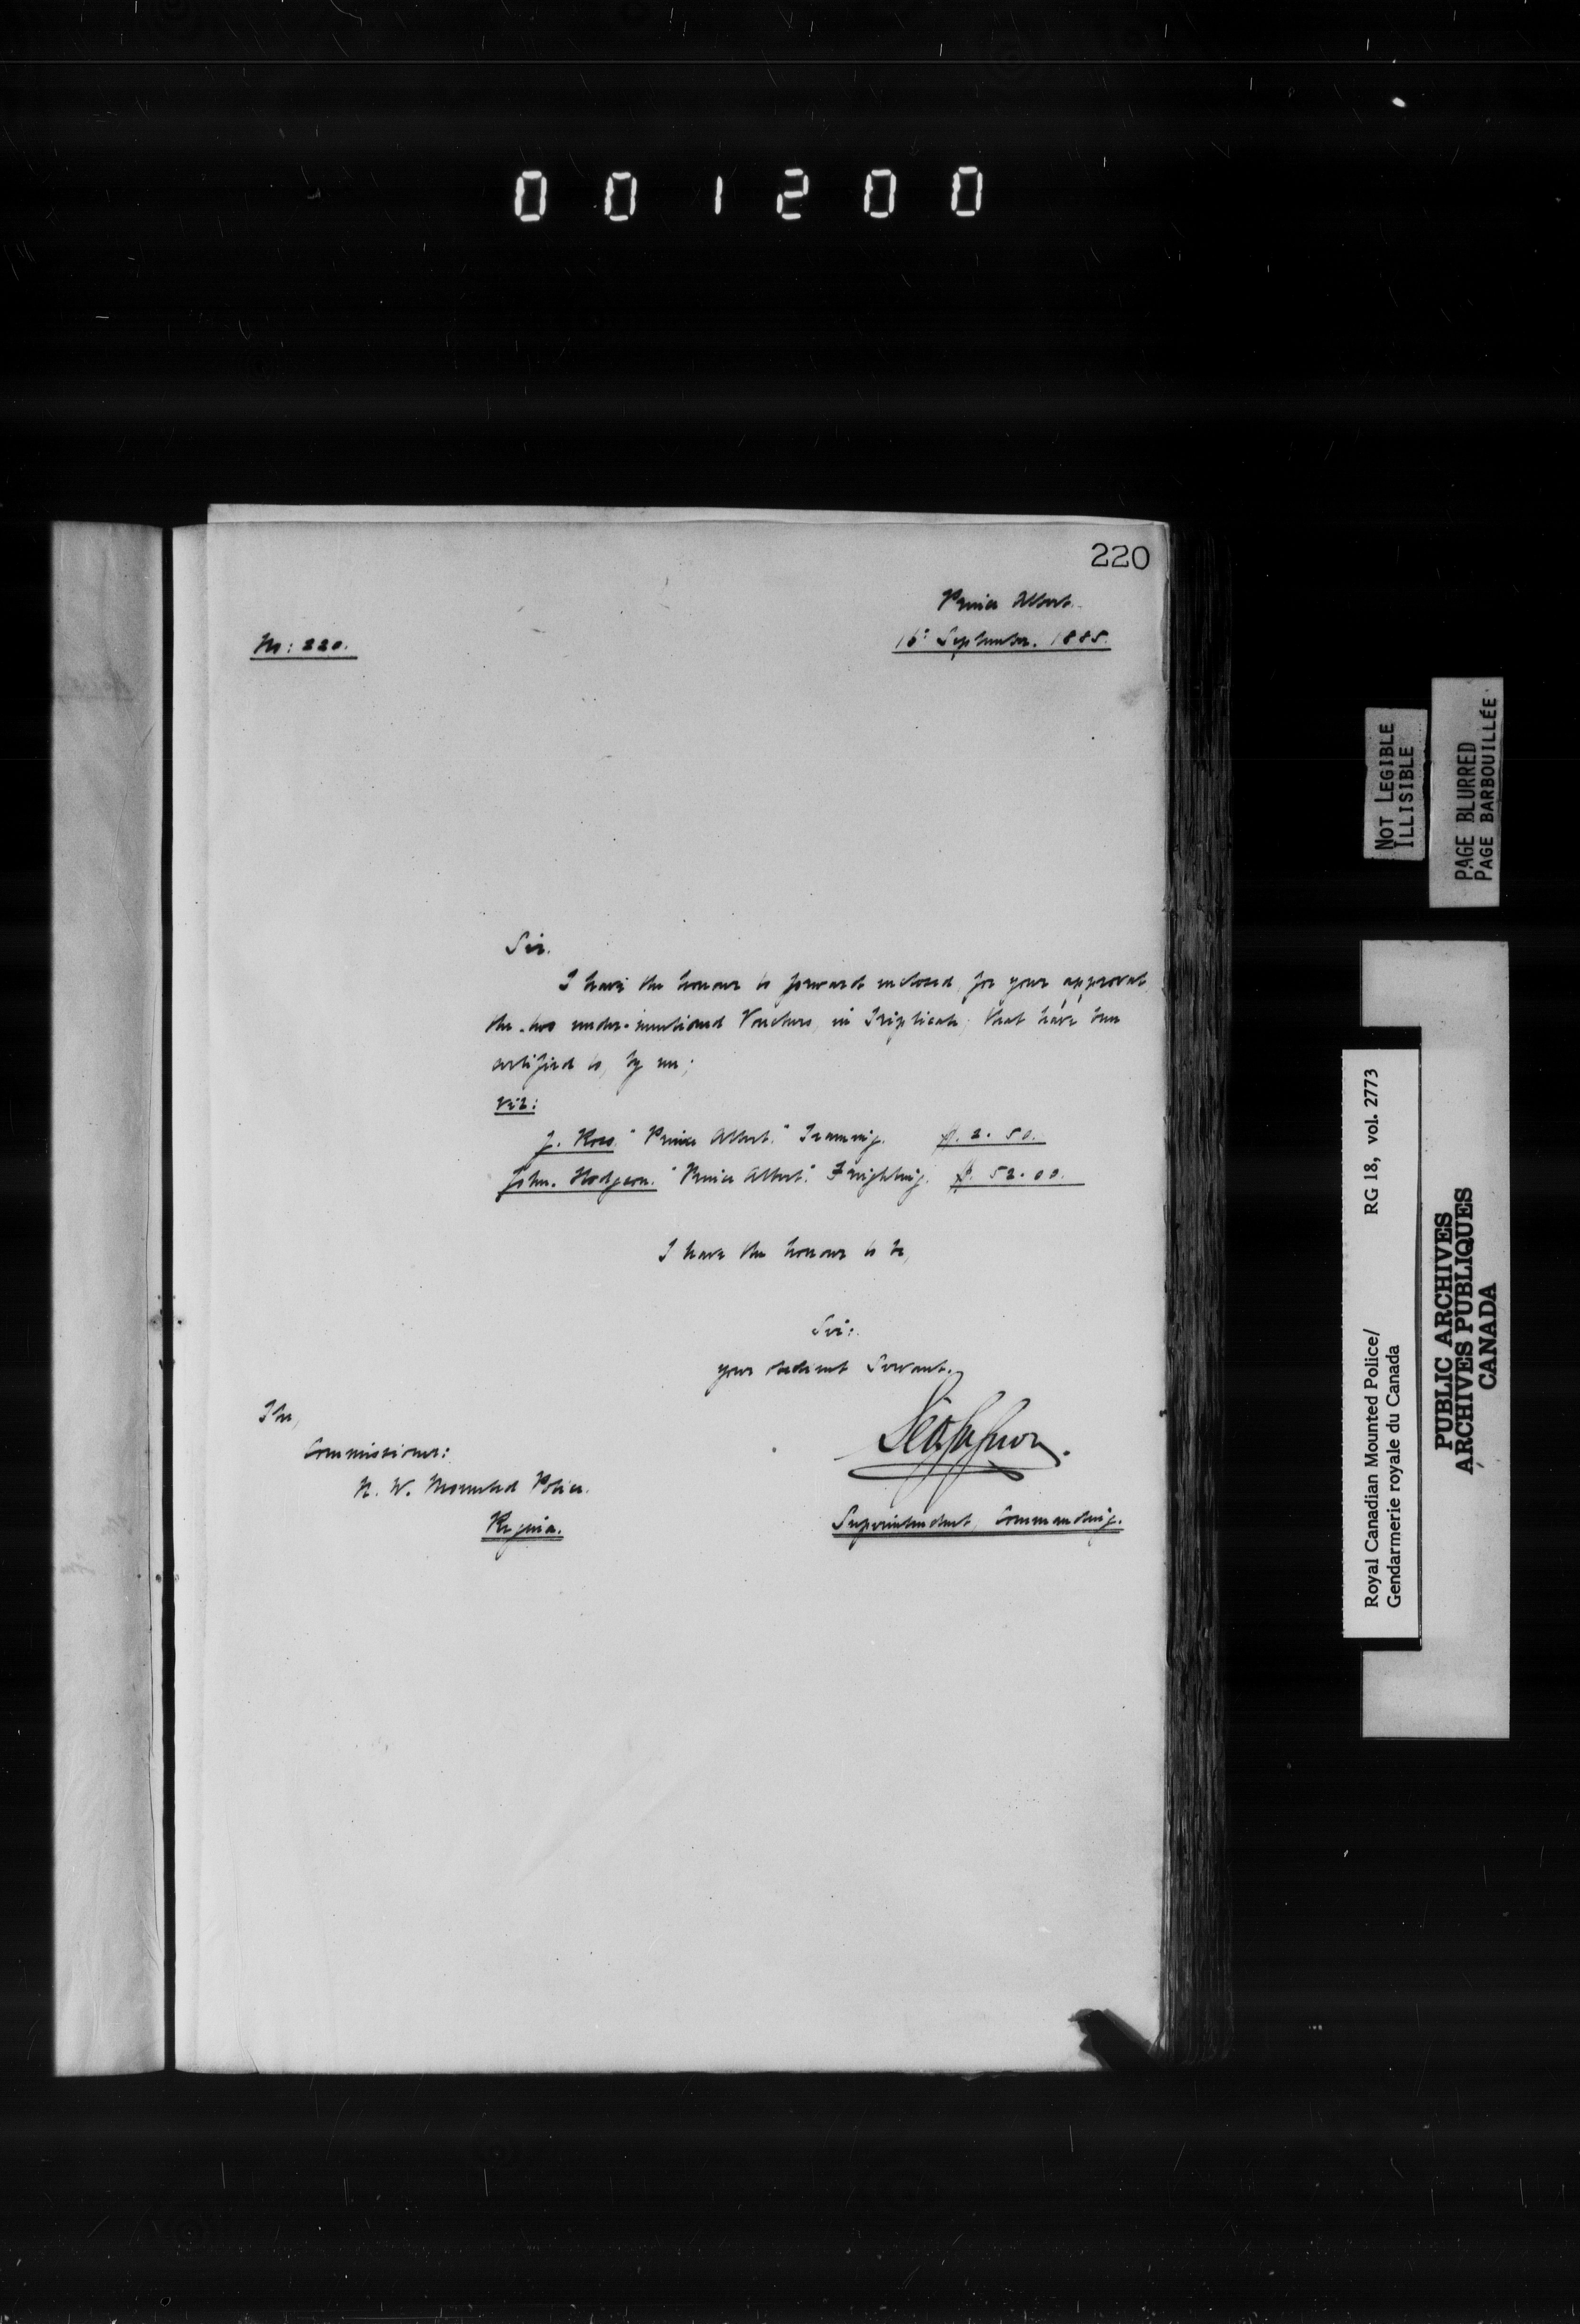 001200
220
Prince Albert.
No: 220.
16: September. 1885.
Sir.
I have the honour to forward enclosed, for your approval,
the two under-mentioned Vouchers, in Triplicate; that have been
certified to, by me;
viz:
J. Ross. "Prince Albert." Teaming. $. 2. 50.
John. Hodgson. "Prince Albert." Freighting. $. 52.00.
I have the honour to be,
Sir:
your obedient Servant.
The,
Commissioner:
N. W. Mounted Police.
Regina.
Superintendent, Commanding.
NOT LEGIBLE
ILLISIBLE
PAGE BLURRED
PAGE BARBOUILLÉE
Royal Canadian Mounted Police/ RG 18, vol. 2773
Gendarmerie royale du Canada
PUBLIC ARCHIVES
ARCHIVES PUBLIQUES
CANADA